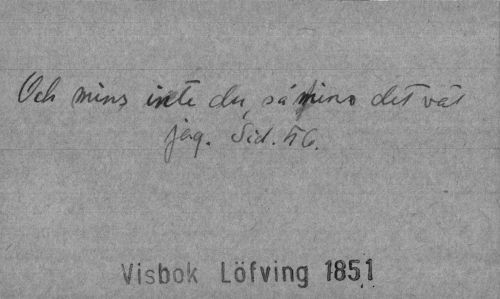 Och mins inte du, så mins det väl
jag. Sid. 56.
Visbok Löfving 1851